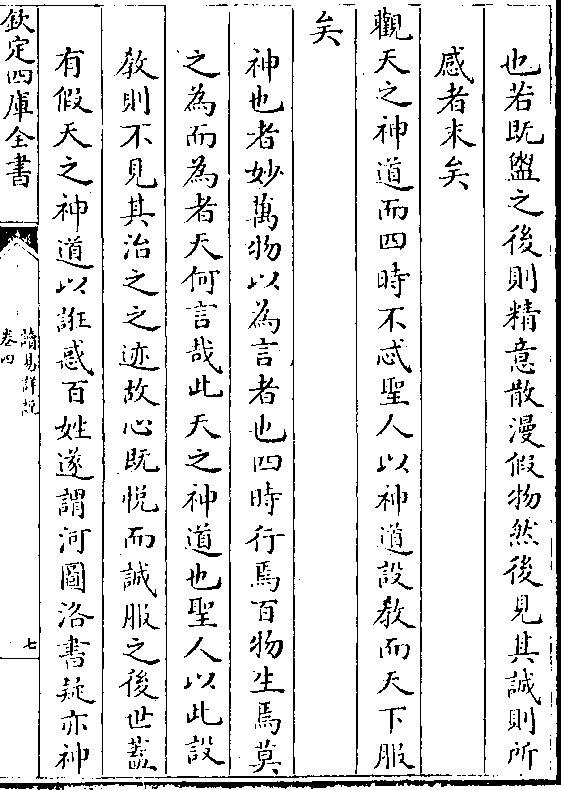 也若既盥之後則精意散漫假物然後見其誠則所
感者末矣
觀天之神道而四時不忒聖人以神道設教而天下服
矣
神也者妙萬物以為言者也四時行焉百物生焉莫
之為而為者天何言哉此天之神道也聖人以此設
教則不見其治之之迹故心既悦而誠服之後世蓋
有假天之神道以誑惑百姓遂謂河圖洛書疑亦神
欽定四庫全書
讀易詳說
卷四
七